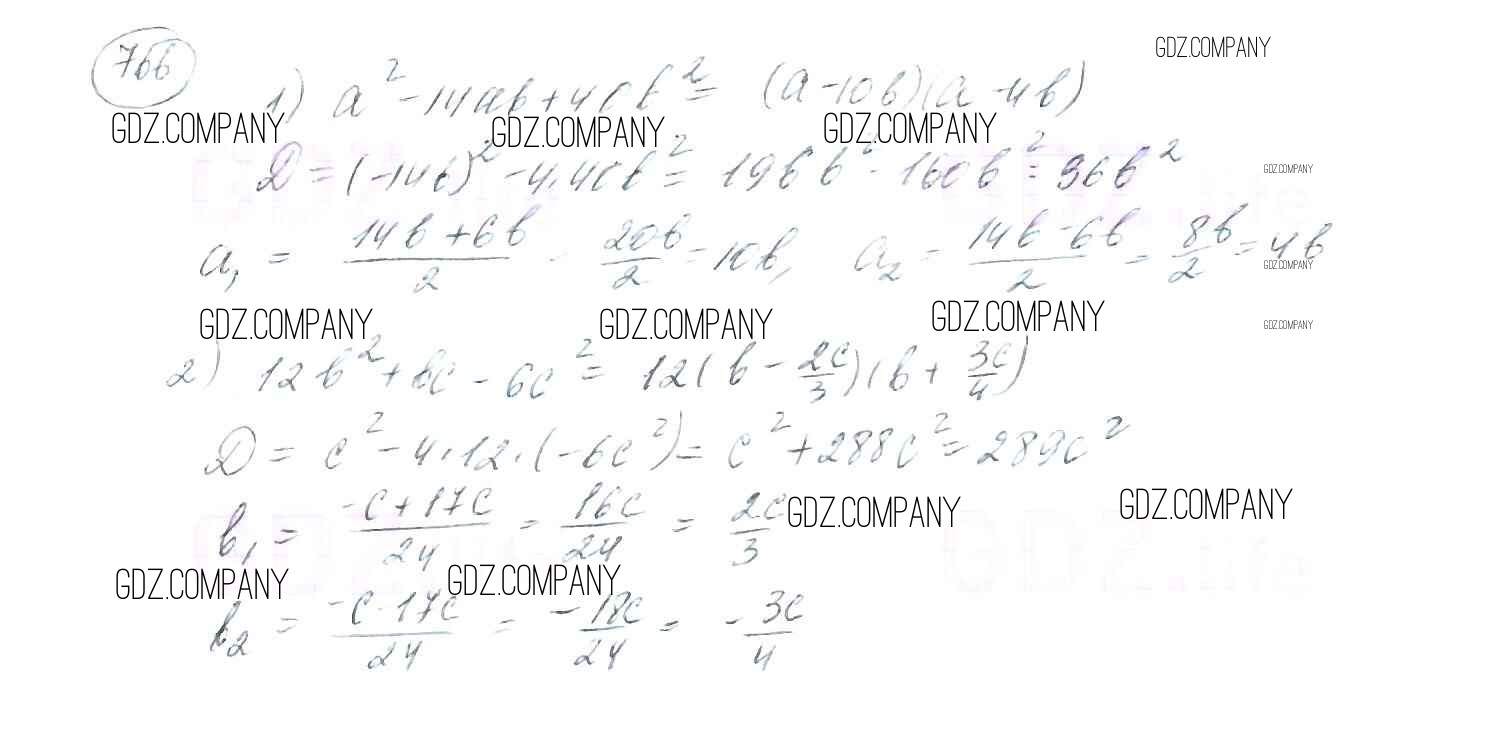 766
GDZ.COMPANY
1) a² - 14ab + 40b² = (a - 10b)(a - 4b)
GDZ.COMPANY GDZ.COMPANY GDZ.COMPANY
D = (-14b)² - 4·40b² = 196b² - 160b² = 36b²
GDZ.COMPANY
a₁ = (14b + 6b)/2 = 20b/2 = 10b, a₂ = (14b - 6b)/2 = 8b/2 = 4b
GDZ.COMPANY
GDZ.COMPANY GDZ.COMPANY GDZ.COMPANY GDZ.COMPANY
2) 12b² + bc - 6c² = 12(b - 2c/3)(b + 3c/4)
D = c² - 4·12·(-6c²) = c² + 288c² = 289c²
b₁ = (-c + 17c)/24 = 16c/24 = 2c/3
GDZ.COMPANY GDZ.COMPANY
GDZ.COMPANY GDZ.COMPANY
b₂ = (-c - 17c)/24 = -18c/24 = -3c/4